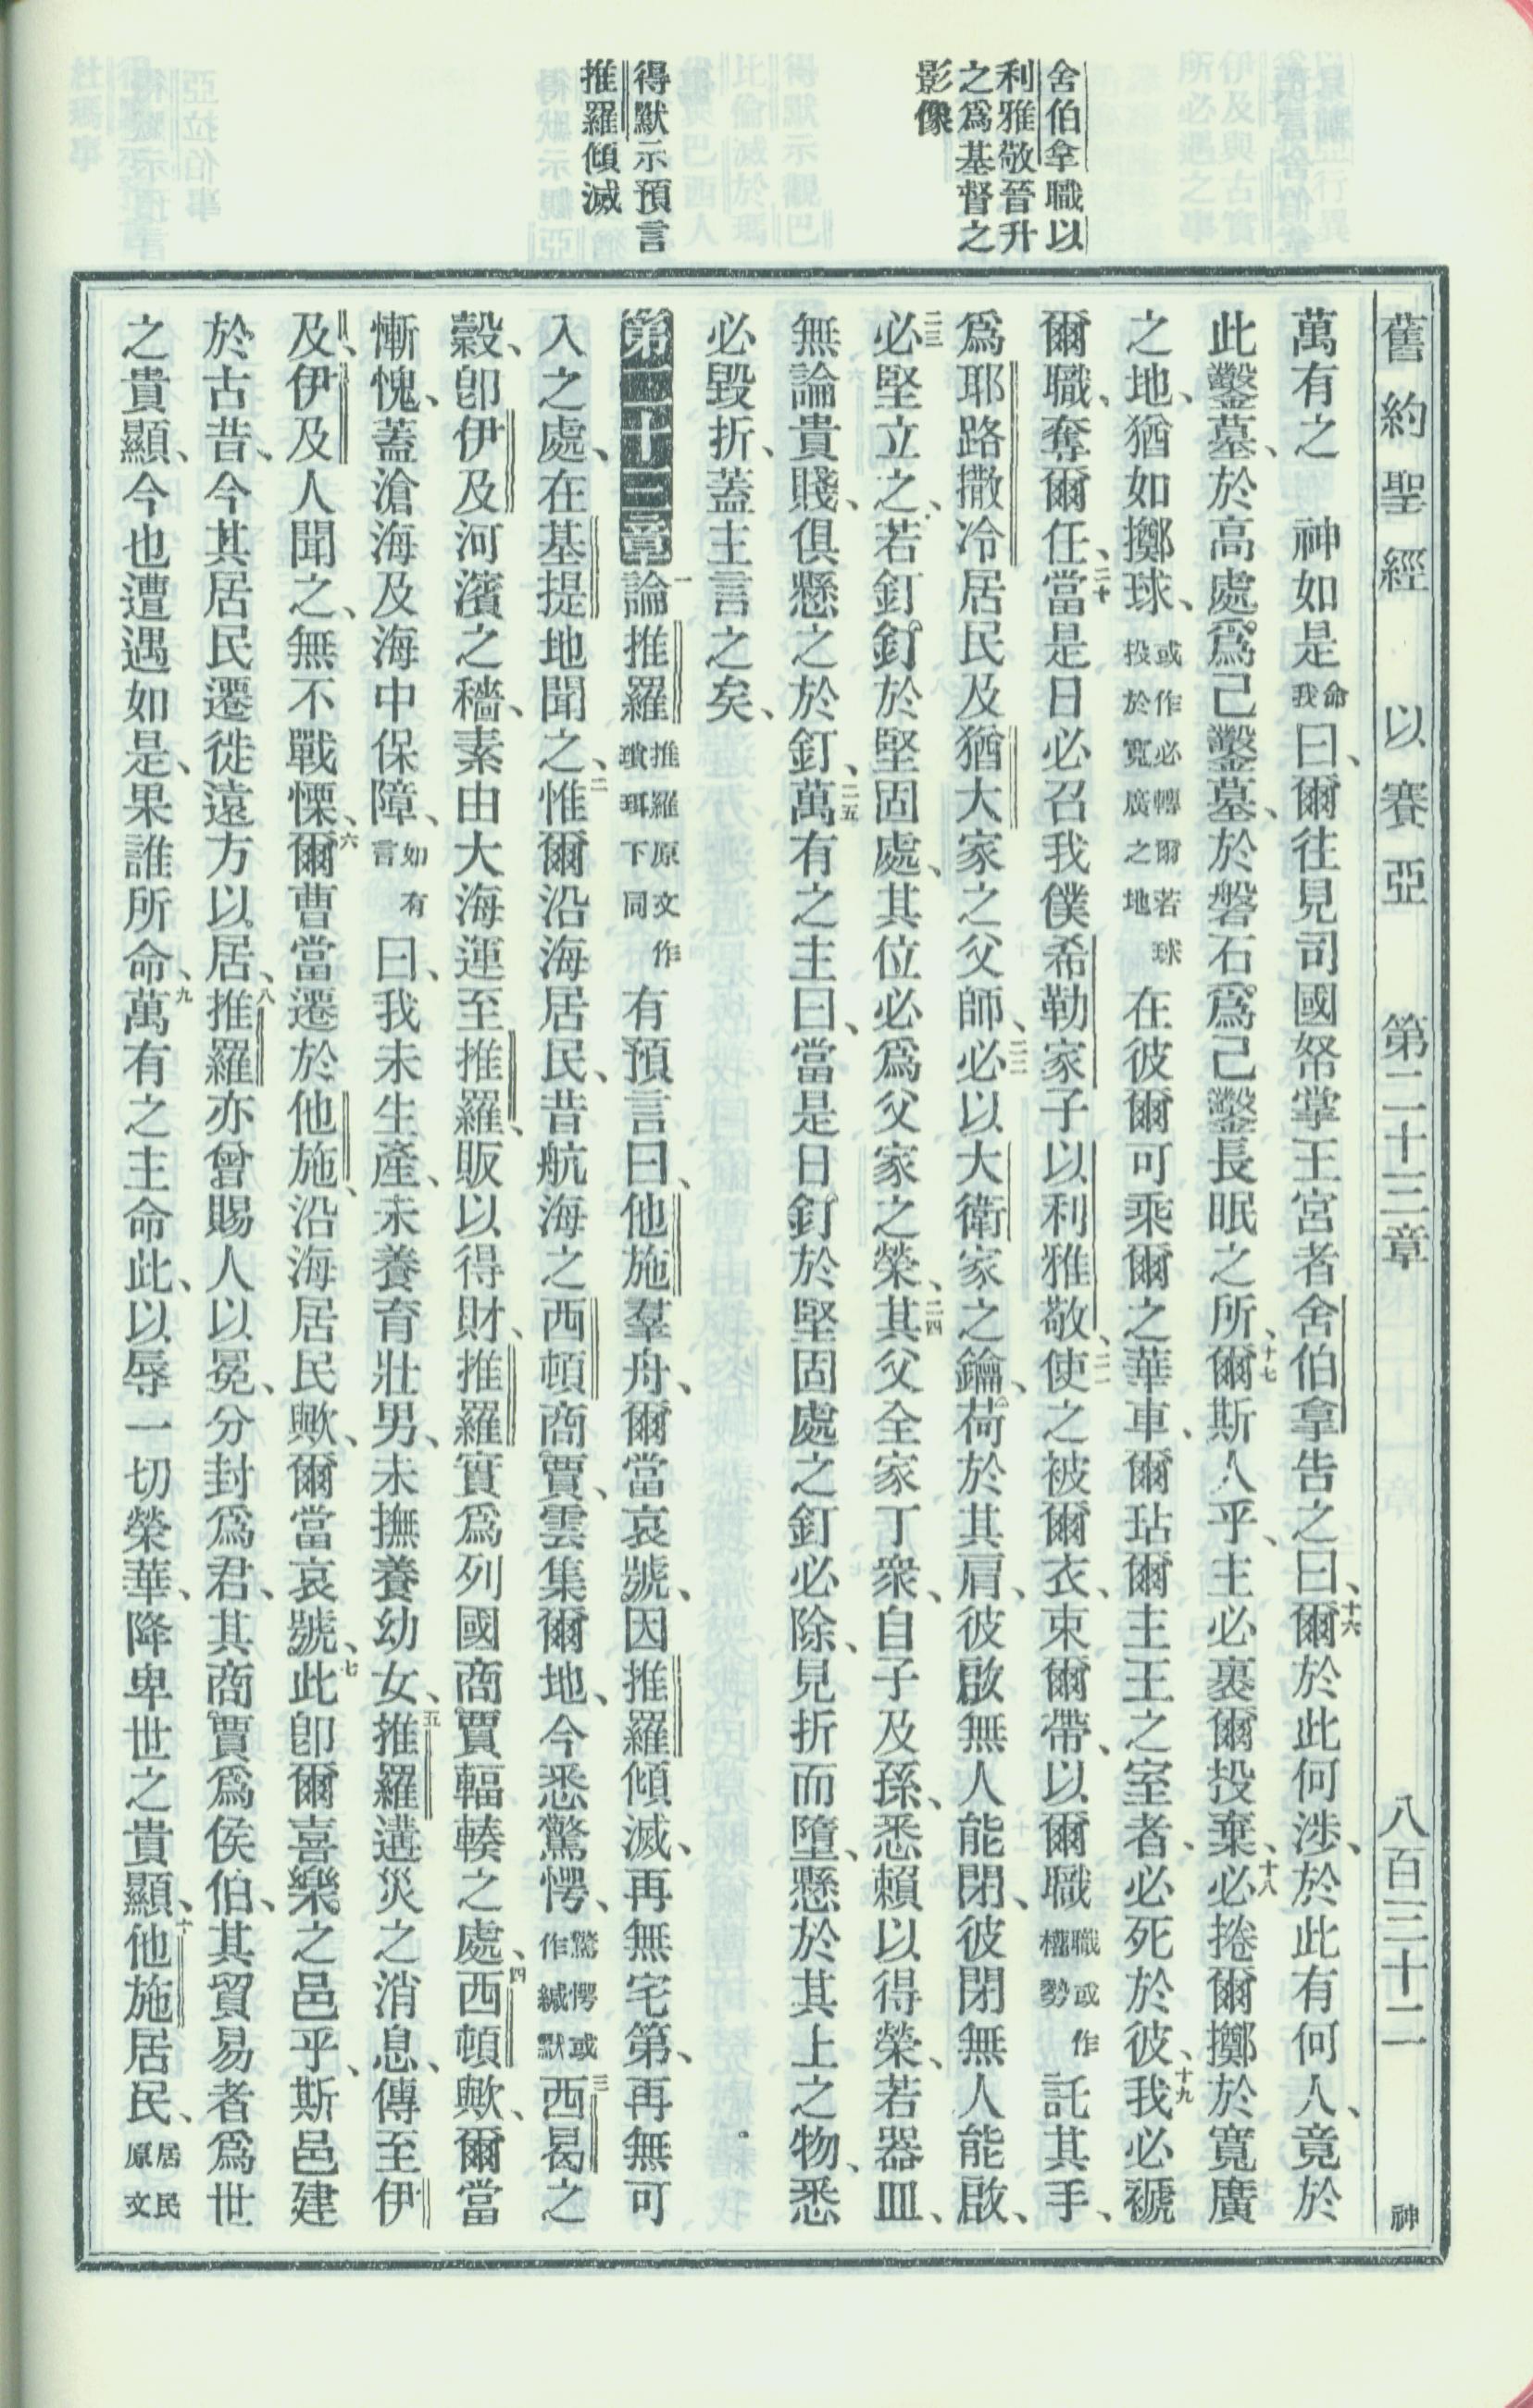 舊約聖經　以賽亞　第二十三章　八百三十二　神
舍伯拿職以
利雅敬晉升
之爲基督之
影像
得默示預言
推羅傾滅
萬有之　神如是命我曰、爾往見司國帑掌王宮者舍伯拿告之曰、十六爾於此何涉、於此有何人、竟於
此鑿墓、於高處爲己鑿墓、於磐石爲己鑿長眠之所、十七爾斯人乎、主必裹爾投棄、十八必捲爾擲於寬廣
之地、猶如擲球、或作必轉爾若球投於寬廣之地在彼爾可乘爾之華車、爾玷爾主王之室者、必死於彼、十九我必褫
爾職、奪爾任、二十當是日必召我僕希勒家子以利雅敬、二一使之被爾衣、束爾帶、以爾職職或作權勢託其手、
爲耶路撒冷居民及猶大家之父師、二二必以大衛家之鑰、荷於其肩、彼啟無人能閉、彼閉無人能啟、
二三必堅立之、若釘釘於堅固處、其位必爲父家之榮、二四其父全家丁衆、自子及孫、悉賴以得榮、若器皿、
無論貴賤、俱懸之於釘、二五萬有之主曰、當是日釘於堅固處之釘必除、見折而墮、懸於其上之物、悉
必毀折、蓋主言之矣、
第二十三章一論推羅推羅原文作瓆珥下同有預言曰、他施羣舟、爾當哀號、因推羅傾滅、再無宅第、再無可
入之處、在基提地聞之、二惟爾沿海居民、昔航海之西頓商賈、雲集爾地、今悉驚愕、驚愕或作緘默三西曷之
穀、卽伊及河濱之穡、素由大海運至推羅、販以得財、推羅實爲列國商賈輻輳之處、四西頓歟、爾當
慚愧、蓋滄海及海中保障、如有言曰、我未生產、未養育壯男、未撫養幼女、五推羅遘災之消息、傳至伊
及、伊及人聞之、無不戰慄、六爾曹當遷於他施、沿海居民歟、爾當哀號、七此卽爾喜樂之邑乎、斯邑建
於古昔、今其居民遷徙遠方以居、八推羅亦曾賜人以冕、分封爲君、其商賈爲侯伯、其貿易者爲世
之貴顯、今也遭遇如是、果誰所命、九萬有之主命此、以辱一切榮華、降卑世之貴顯、十他施居民、居民原文